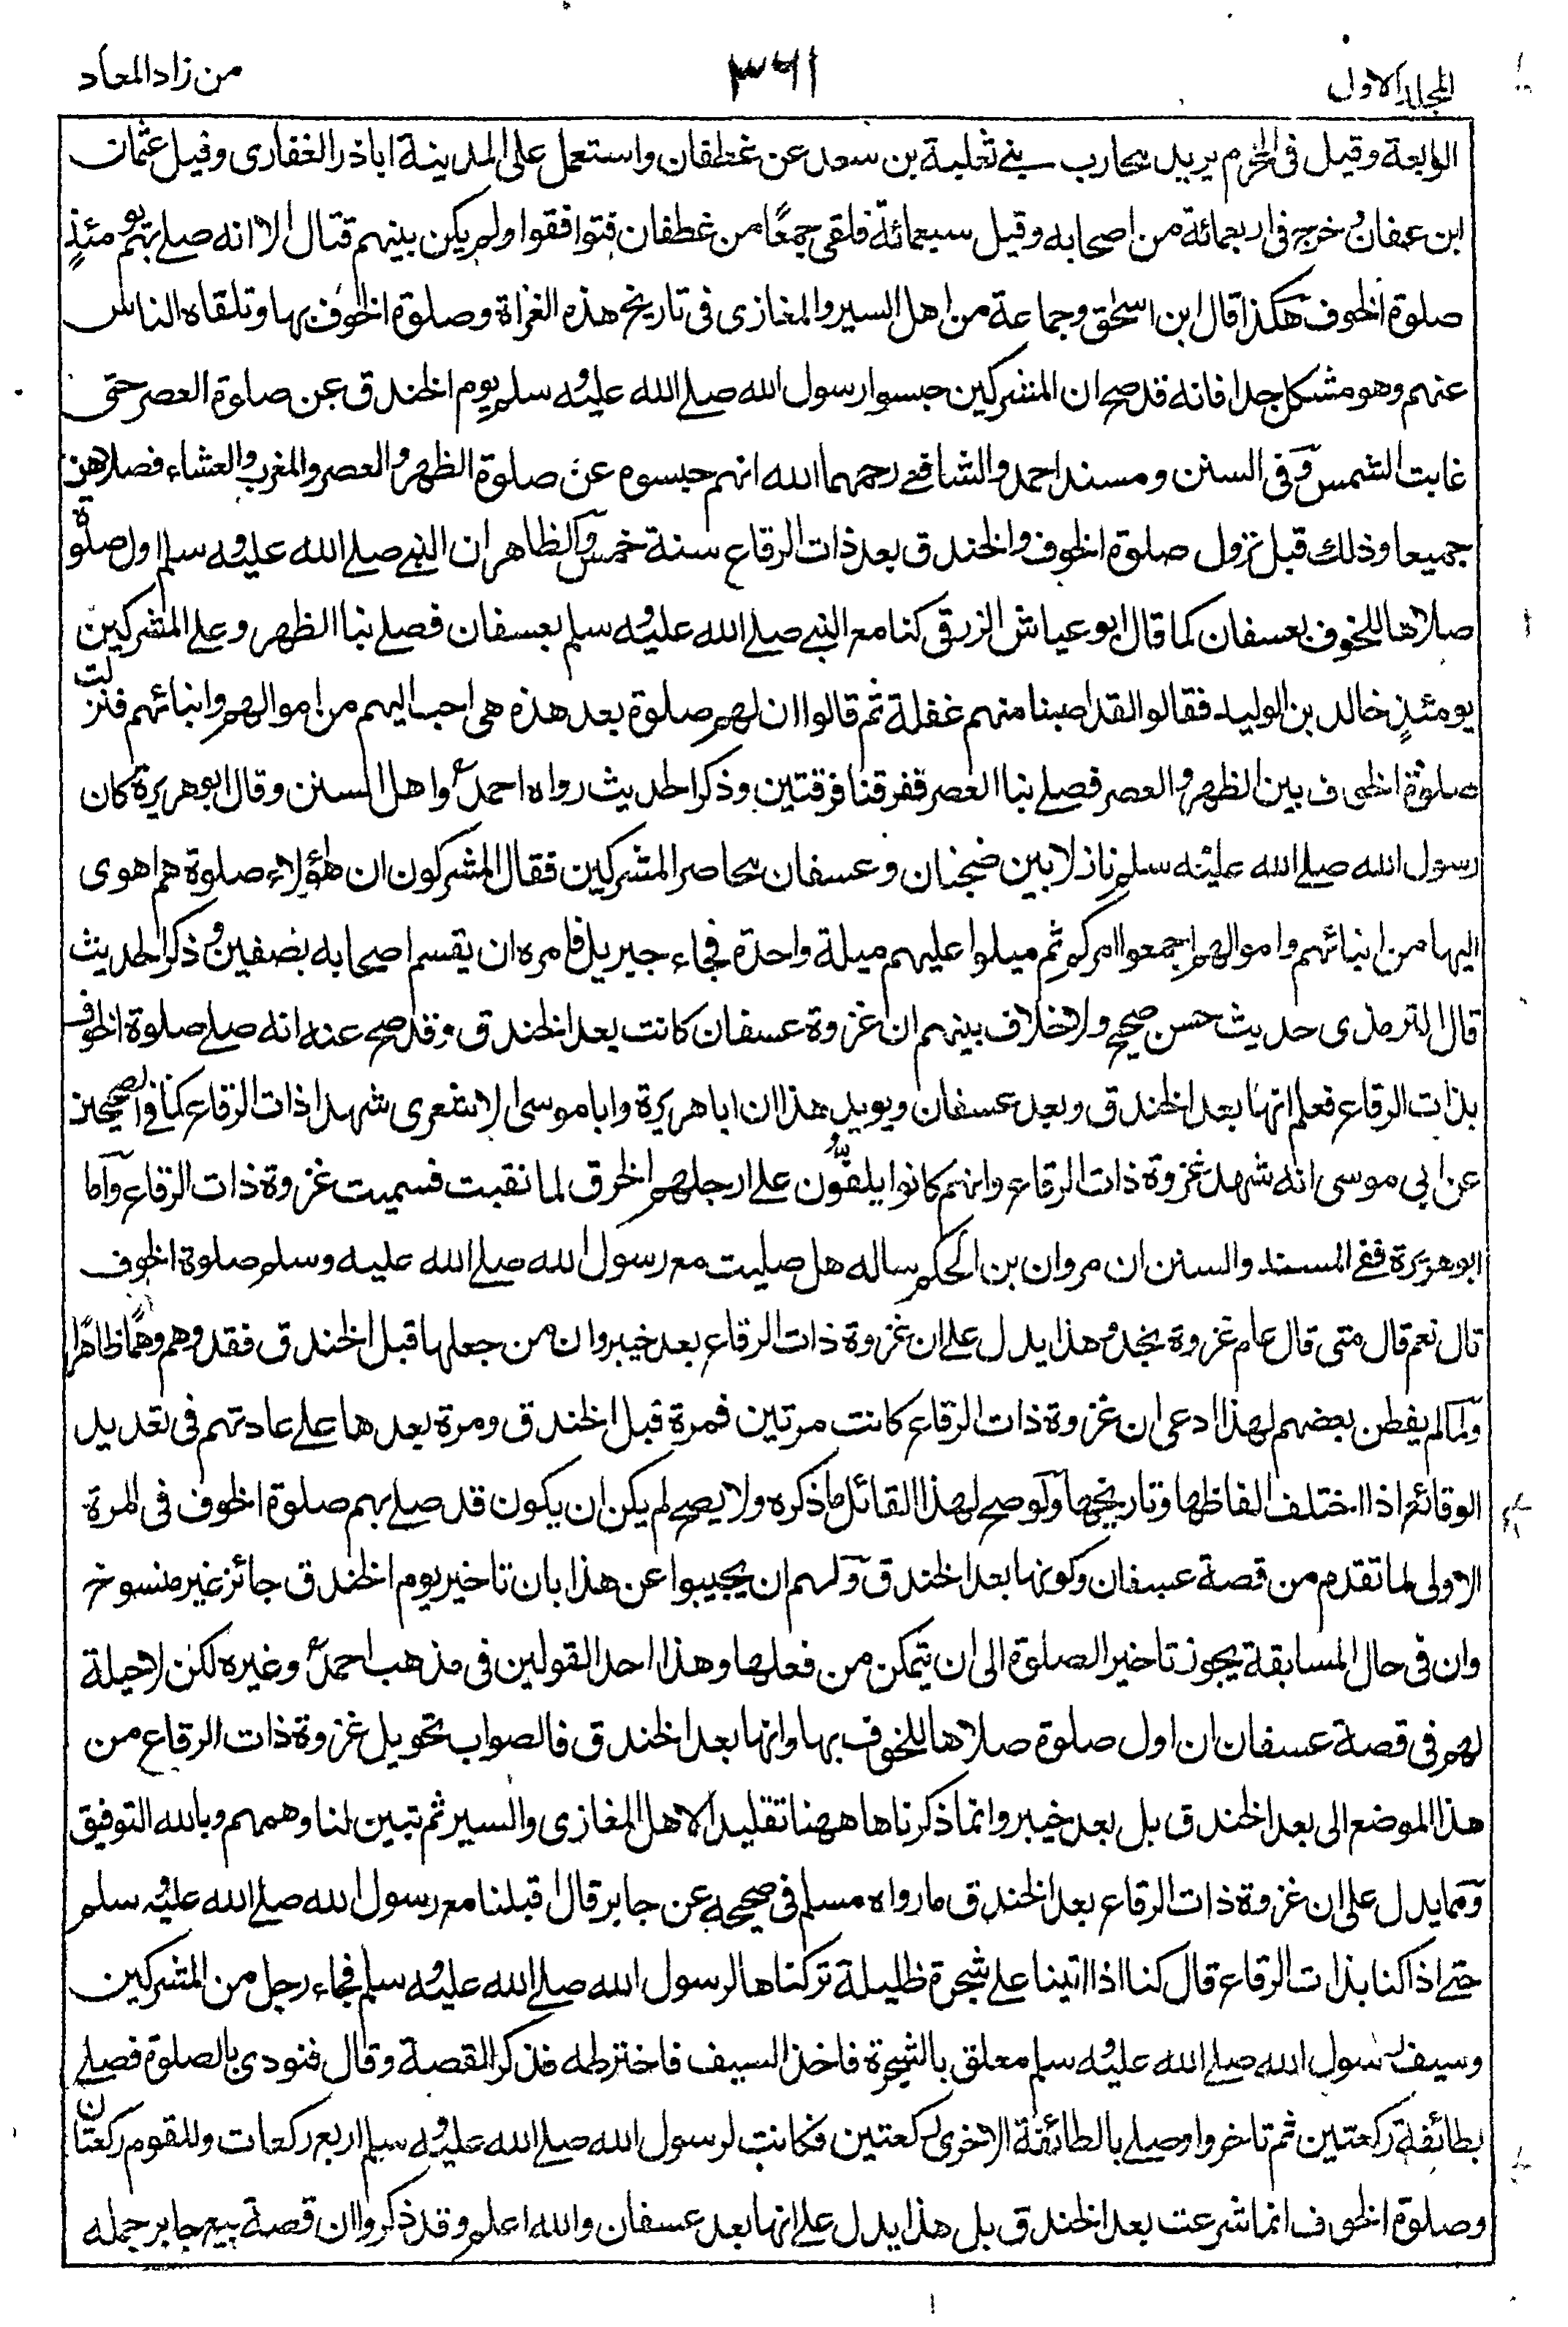 المجلد الاول
٣٦١
من زاد المعاد
الرابعة وقيل فى المحرم يريد محارب وبنى ثعلبة بن سعد عن غطفان واستعمل على المدينة اباذر الغفارى وقيل عثمان
ابن عفان وخرج فى اربعمائة من اصحابه وقيل سبعمائة فلقى جمعًا من غطفان فتوافقوا ولم يكن بينهم قتال الا انه صلے بهم يومئذٍ
صلوة الخوف هكذا قال ابن اسحٰق وجماعة من اهل السير والمغازى فى تاريخ هذه الغزاة وصلوة الخوف بها وتلقاه الناس
عنهم وهو مشكل جدا فانه قد صح ان المشركين حبسوا رسول الله صلے الله عليه وسلم يوم الخندق عن صلوة العصر حتى
غابت الشمس وفى السنن ومسند احمد والشافعے رحمهما الله انهم حبسوه عن صلوة الظهر والعصر والمغرب والعشاء فصلاهن
جميعا وذلك قبل نزول صلوة الخوف والخندق بعد ذات الرقاع سنة خمس والظاهر ان النبے صلے الله عليه وسلم اول صلوة
صلاها للخوف بعسفان كما قال ابو عياش الزرقى كنا مع النبے صلے الله عليه وسلم بعسفان فصلے بنا الظهر وعلے المشركين
يومئذٍ خالد بن الوليد فقالوا لقد اصبنا منهم غفلة ثم قالوا ان لهم صلوة بعد هذه هى احب اليهم من اموالهم وابنائهم فنزلت
صلوة الخوف بين الظهر والعصر فصلے بنا العصر ففرقنا فرقتين وذكر الحديث رواه احمد واهل السنن وقال ابوهريرة كان
رسول الله صلے الله عليه وسلم نازلا بين ضجنان وعسفان محاصر المشركين فقال المشركون ان لهؤلاء صلوة هم اهوى
اليها من ابنائهم واموالهم اجمعوا امركم ثم ميلوا عليهم ميلة واحدة فجاء جبريل فامره ان يقسم اصحابه نصفين وذكر الحديث
قال الترمذى حديث حسن صحيح ولا خلاف بينهم ان غزوة عسفان كانت بعد الخندق وقد صح عنه انه صلے صلوة الخوف
بذات الرقاع فعلم انها بعد الخندق وبعد عسفان ويويد هذا ان اباهريرة واباموسى الاشعرى شهدا ذات الرقاع كما فے الصحيحين
عن ابى موسى انه شهد غزوة ذات الرقاع وانهم كانوا يلفّون علے ارجلهم الخرق لما نقبت فسميت غزوة ذات الرقاع واما
ابوهريرة ففے المسند والسنن ان مروان بن الحكم ساله هل صليت مع رسول الله صلے الله عليه وسلم صلوة الخوف
قال نعم قال متى قال عام غزوة نجد وهذا يدل علے ان غزوة ذات الرقاع بعد خيبر وان من جعلها قبل الخندق فقد وهم وهمًا ظاهرًا
ولما لم يفطن بعضهم لهذا ادعى ان غزوة ذات الرقاع كانت مرتين فمرة قبل الخندق ومرة بعدها علے عادتهم فى تعديد
الوقائع اذا اختلف الفاظها وتاريخها ولو صح لهذا القائل ما ذكره ولا يصح لم يكن ان يكون قد صلے بهم صلوة الخوف فى المرة
الاولى لما تقدم من قصة عسفان وكونها بعد الخندق ولهم ان يجيبوا عن هذا بان تاخير يوم الخندق جائز غير منسوخ
وان فى حال المسابقة يجوز تاخير الصلوة الى ان يتمكن من فعلها وهذا احد القولين فى مذهب احمد وغيره لكن لا حيلة
لهم فى قصة عسفان ان اول صلوة صلاها للخوف بها وانها بعد الخندق فالصواب تحويل غزوة ذات الرقاع من
هذا الموضع الى بعد الخندق بل بعد خيبر وانما ذكرناها ههنا تقليدا لاهل المغازى والسير ثم تبين لنا وهمهم وبالله التوفيق
ومما يدل على ان غزوة ذات الرقاع بعد الخندق ما رواه مسلم فى صحيحه عن جابر قال اقبلنا مع رسول الله صلے الله عليه وسلم
حتے اذا كنا بذات الرقاع قال كنا اذا اتينا علے شجرة ظليلة تركناها لرسول الله صلے الله عليه وسلم فجاء رجل من المشركين
وسيف رسول الله صلے الله عليه وسلم معلق بالشجرة فاخذ السيف فاخترطه فذكر القصة وقال فنودى بالصلوة فصلے
بطائفة ركعتين ثم تاخروا وصلے بالطائفة الاخرى ركعتين فكانت لرسول الله صلے الله عليه وسلم اربع ركعات وللقوم ركعتان
وصلوة الخوف انما شرعت بعد الخندق بل هذا يدل علے انها بعد عسفان والله اعلم وقد ذكروا ان قصة بيع جابر جمله